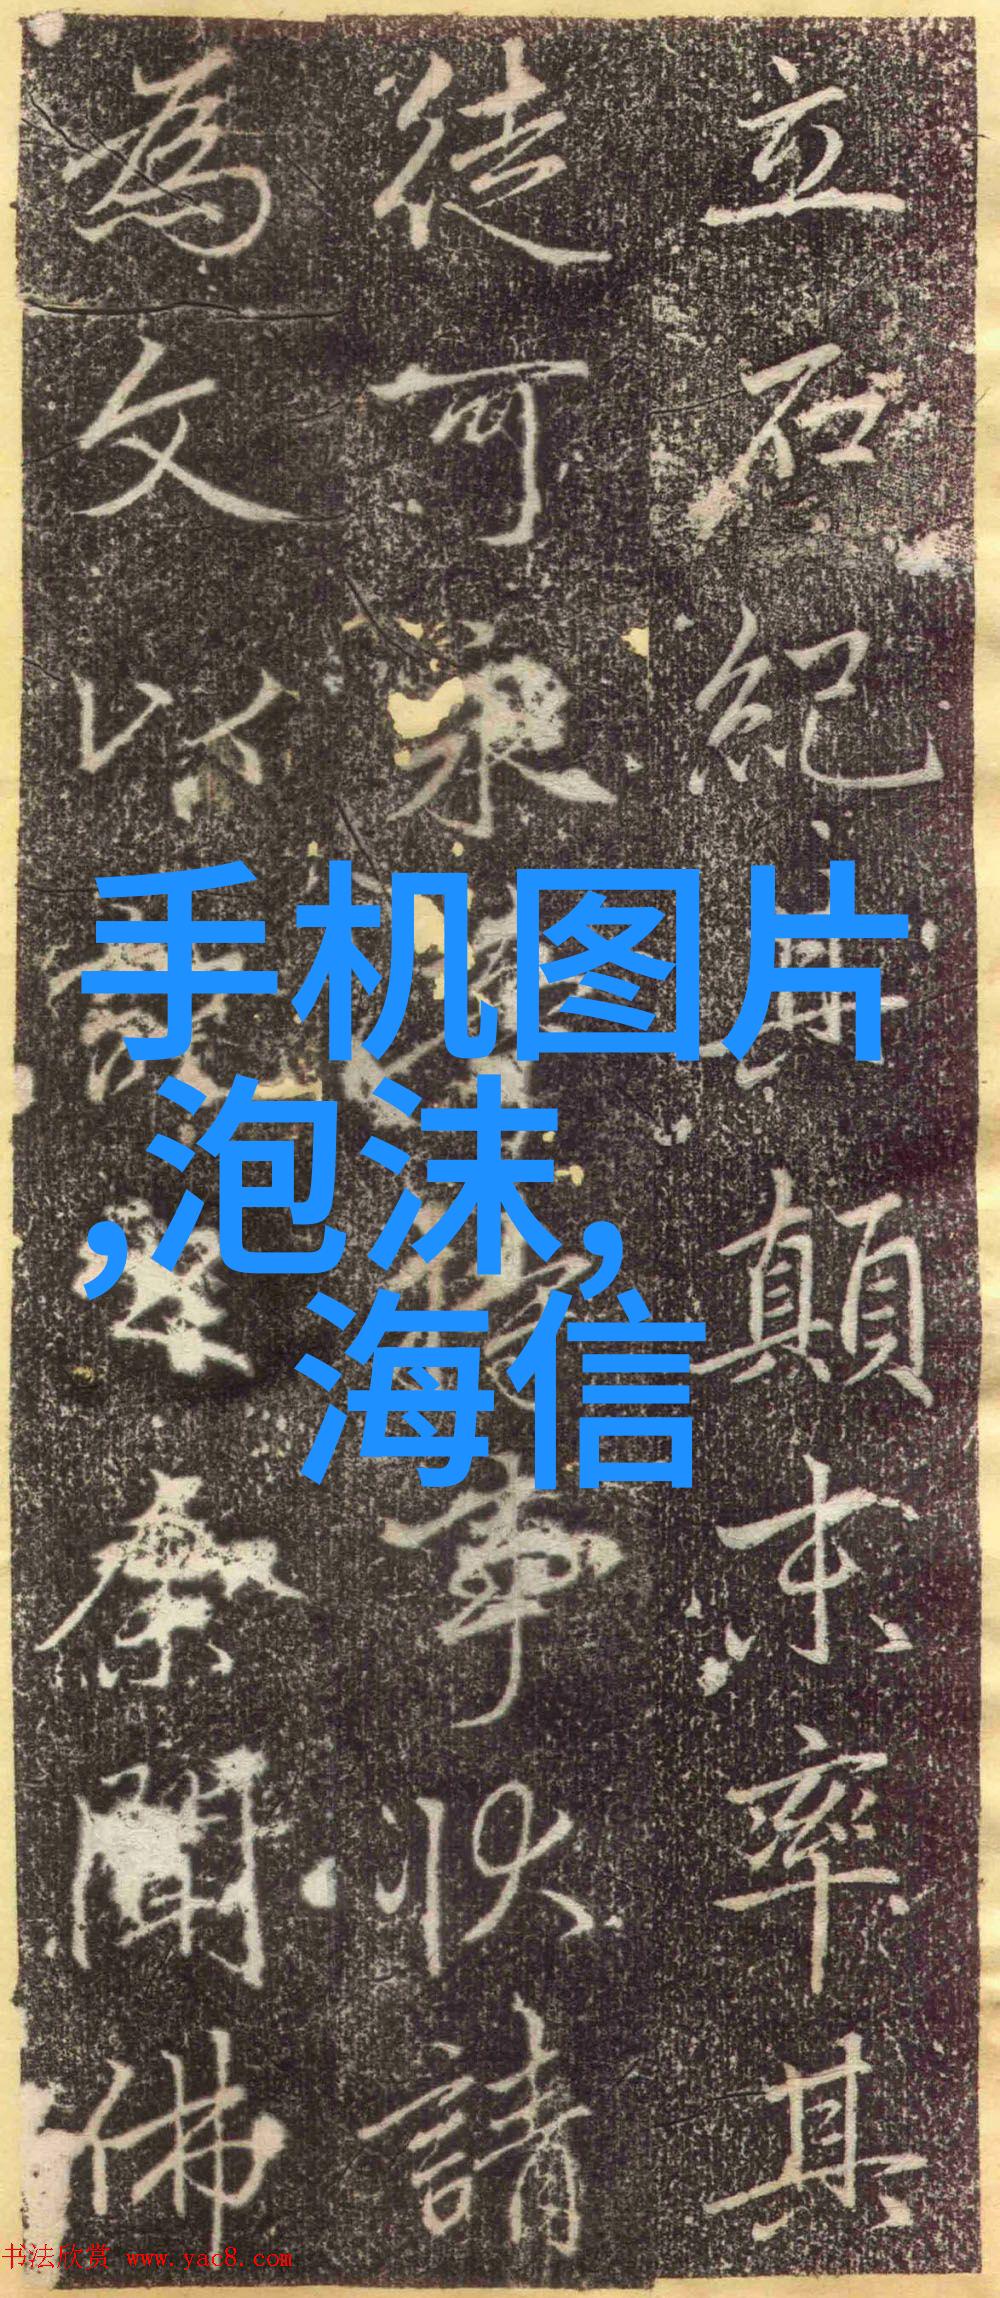 立石紀其顛末率其
徒可
事狀請
為文以
余聞佛
手机图片
,泡沫,
海信
书法欣赏 www.yac8.com